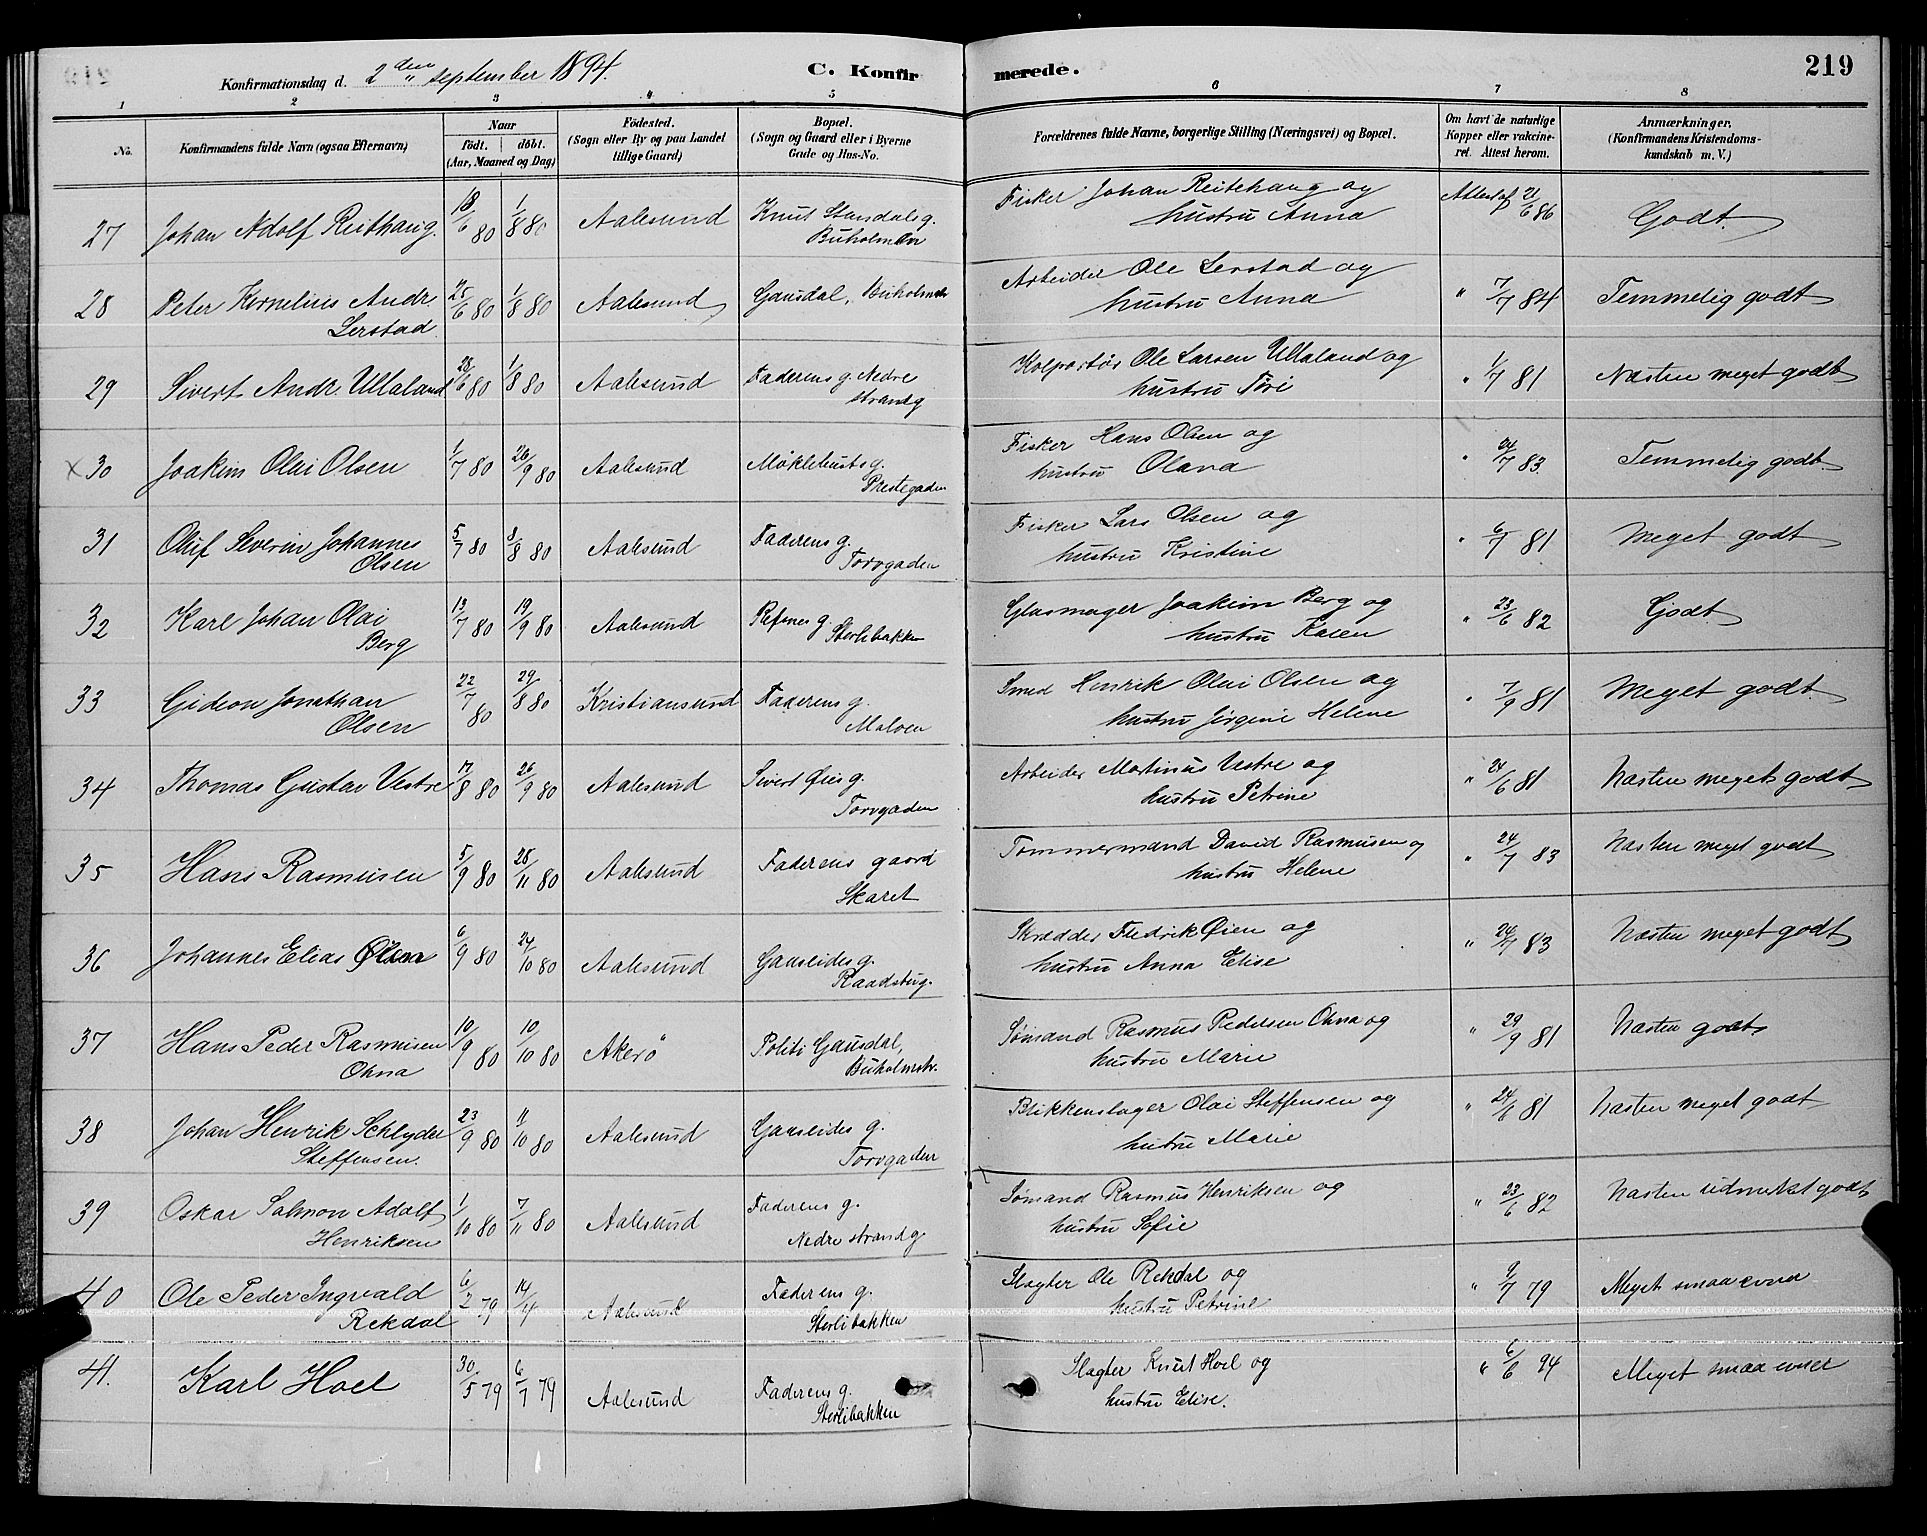 219
Konfirmationsdag d. 2den september 1894.
C. Konfirmerede.
1 2 3 4 5 6 7 8
No.
Konfirmandens fulde Navn (ogsaa Efternavn)
Naar
födt. döbt.
(Aar, Maaned og Dag)
Födested.
(Sogn eller By og paa Landet
tillige Gaard)
Bopæl.
(Sogn og Gaard eller i Byerne
Gade og Hus-No.
Forældrenes fulde Navne, borgerlige Stilling (Næringsvei) og Bopæl.
Om havt de naturlige
Kopper eller vakcine-
ret. Attest herom.
Anmærkninger,
(Konfirmandens Kristendoms-
kundskab m. V.)
27 Johan Adolf Reithaug. 18/6 80 1/8 80 Aalesund Knut Standals g. Fisker Johan Reitehaug og Attest af 21/6 86 Godt.
Buholmen hustru Anna
28 Peter Kornelius Andr. 25/6 80 1/8 80 Aalesund Gausdal, Buholmstr Arbeider Ole Lerstad og " 7/7 84 Temmelig godt
Lerstad hustru Anna
29 Sivert Andr. Ullaland 28/6 80 1/8 80 Aalesund Faderens g. Nedre Kolportør Ole Larsen Ullaland og " 1/7 81 Næsten meget godt
strandg hustru Tori
x 30 Joakim Olai Olsen 1/7 80 26/9 80 Aalesund Møklebusts g. Fisker Hans Olsen og " 24/7 83. Temmelig godt
Prestegaden hustru Olava
31 Oluf Severin Johannes 5/7 80 8/8 80 Aalesund Faderens g. Fisker Lars Olsen og " 6/7 81 Meget godt
Olsen Torvgaden hustru Kristine
32 Karl Johan Olai 13/7 80 19/9 80 Aalesund Refsnes g. Glasmager Joakim Berg og " 23/6 82 Godt
Berg Storlibakken hustru Karen
33 Gideon Jonathan 22/7 80 29/8 80 Kristiansund Faderens g. Smed Henrik Olai Olsen og " 7/9 81 Meget godt
Olsen Maloen hustru Jørgine Helene
34 Thomas Gustav Vestre 17/8 80 26/9 80 Aalesund Sivert Øies g. Arbeider Martinus Vestre og " 21/6 81 Næsten meget godt
Torvgaden hustru Petrine
35 Hans Rasmusen 5/9 80 28/11 80 Aalesund Faderens gaard Tømmermand David Rasmusen og " 24/7 83 Næsten meget godt
Skaret hustru Helene
36 Johannes Elias Øien 6/9 80 24/10 80 Aalesund Ganseides g. Skrædder Fredrik Øien og " 24/7 83 Næsten meget godt
Raadstug. hustru Anna Elise
37 Hans Peder Rasmusen 10/9 80 10/10 80 Akerø Politi Gausdal, Sømand Rasmus Pedersen Ohna og " 29/9 81 Næsten godt
Ohna Buholmstr. hustru Marie
38 Johan Henrik Schlyder 23/9 80 11/10 80 Aalesund Ganseides g. Blikkenslager Olai Steffensen og " 24/6 81 Næsten meget godt
Steffensen. Torvgaden hustru Marie
39 Oskar Salmon Adolf 1/10 80 7/11 80 Aalesund Faderens g. Sømand Rasmus Henriksen og " 23/6 82 Næsten udmerket godt
Henriksen Nedre strandg hustru Sofie
40 Ole Peder Ingvald 6/2 79 14/4 Aalesund Faderens g. Slagter Ole Rekdal og " 9/7 79 Meget smaa evner
Rekdal Storlibakken hustru Petrine
41. Karl Hoel 30/5 79 6/7 79 Aalesund Faderens g. Slagter Knut Hoel og " 6/6 94 Meget smaa evner
Storlibakken hustru Elise.